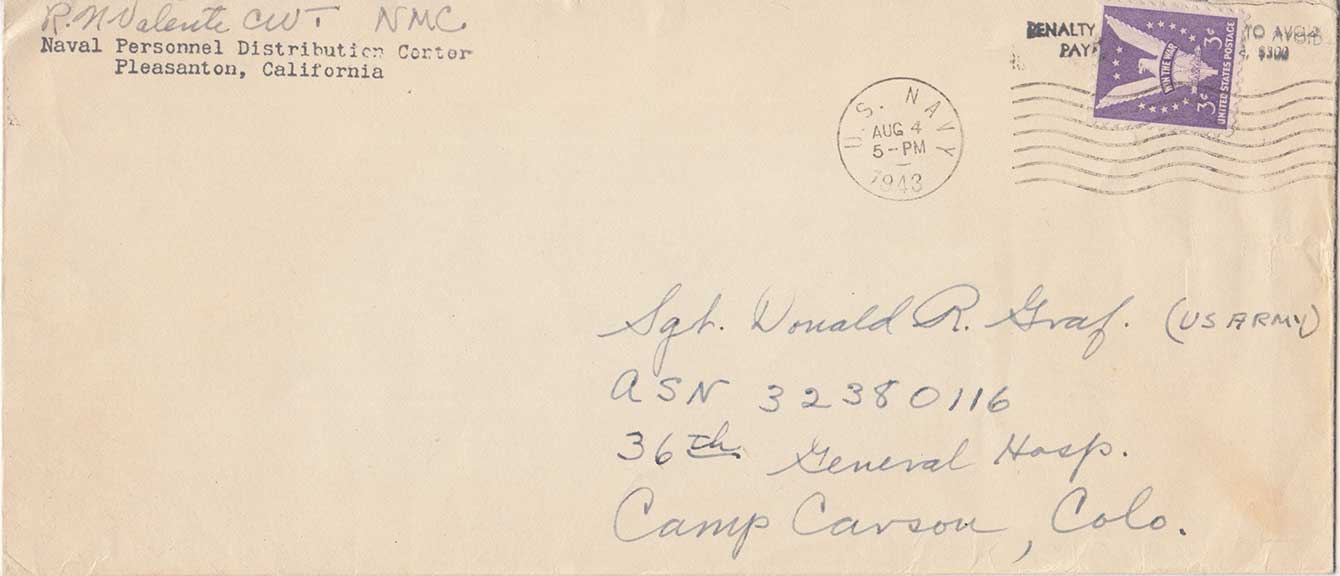 R. N Valente CWT NMC
Naval Personnel Distribution Center
Pleasanton, California
PENALTY TO AVOID
PAY $300
WIN THE WAR
3¢ 3¢
UNITED STATES POSTAGE
U.S. NAVY
AUG 4
5-PM
1943
Sgt. Donald R. Graf. (US ARMY)
ASN 32380116
36th General Hosp.
Camp Carson, Colo.